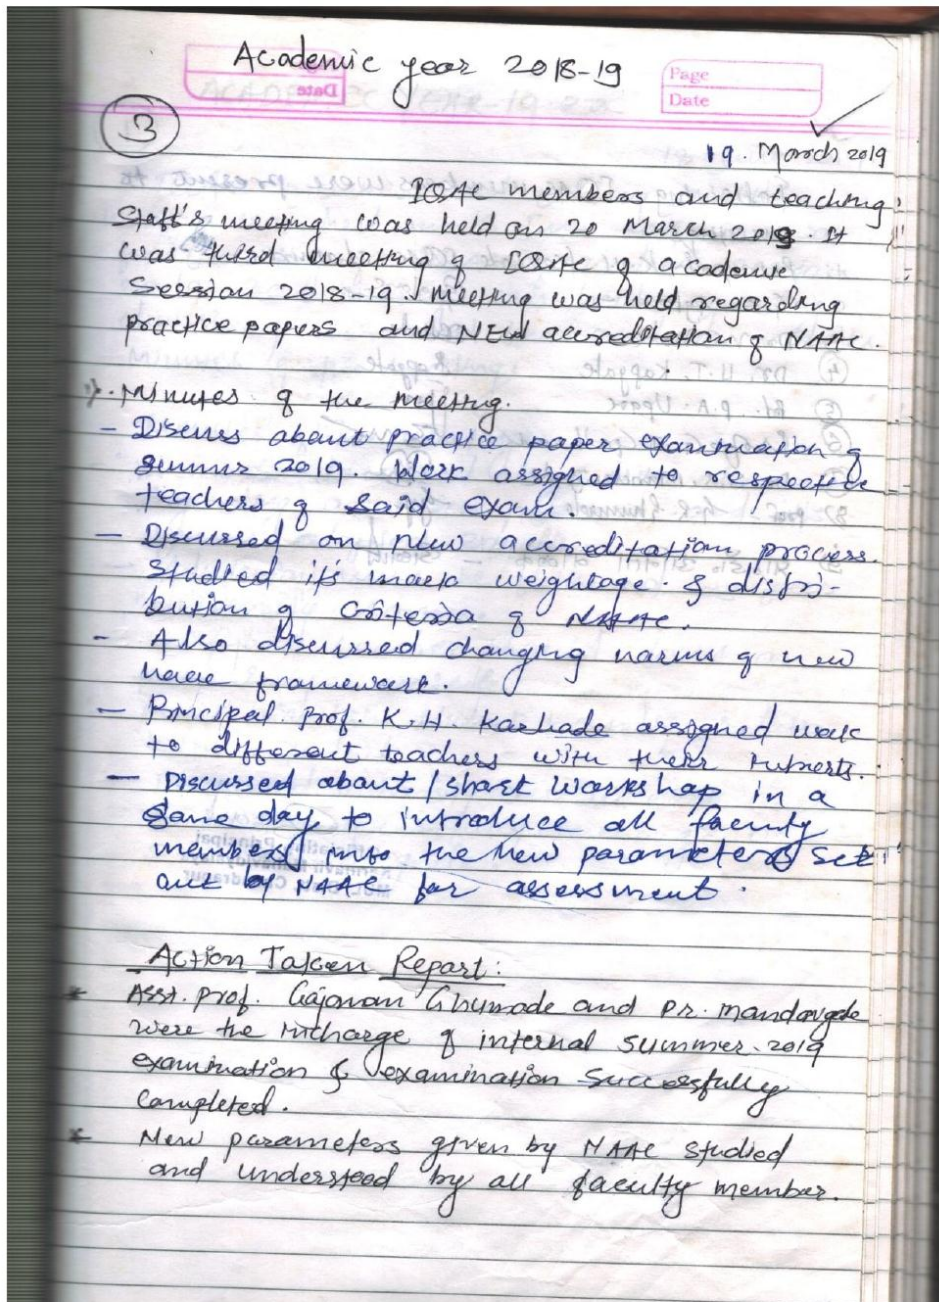 Academic year 2018-19
Page
Date
3
19. March 2019
IQAC members and teaching
Staff's meeting was held on 20 March 2019. It
was third meeting of IQAC of academic
Session 2018-19. Meeting was held regarding
practice papers and NEW accreditation of NAAC.
Minutes of the meeting.
- Discuss about practice paper examination of
summer 2019. Work assigned to respective
teachers of said exam.
- Discussed on new accreditation process.
Studied it's mark weightage & distri-
bution of criteria of NAAC.
- Also discussed changing norms of new
naac framework.
- Principal Prof. K.H. assigned work
to different teachers with their
- Discussed about / short workshop in a
same day to introduce all faculty
members into the new parameters set
out by NAAC for assessment.
Action Taken Report:
* Asst. Prof. Gajanan Ghumade and
were the incharge of internal summer-2019
examination & examination successfully
completed.
* New parameters given by NAAC studied
and understood by all faculty member.